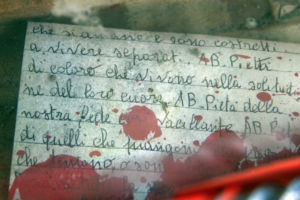 che si amano e sono costretti
a vivere separati. AB. Pietà
di coloro che vivono nella solitudi
ne del loro cuore AB. Pietà della
nostra fede vacillante AB. P
di quelli che piangono
che temono